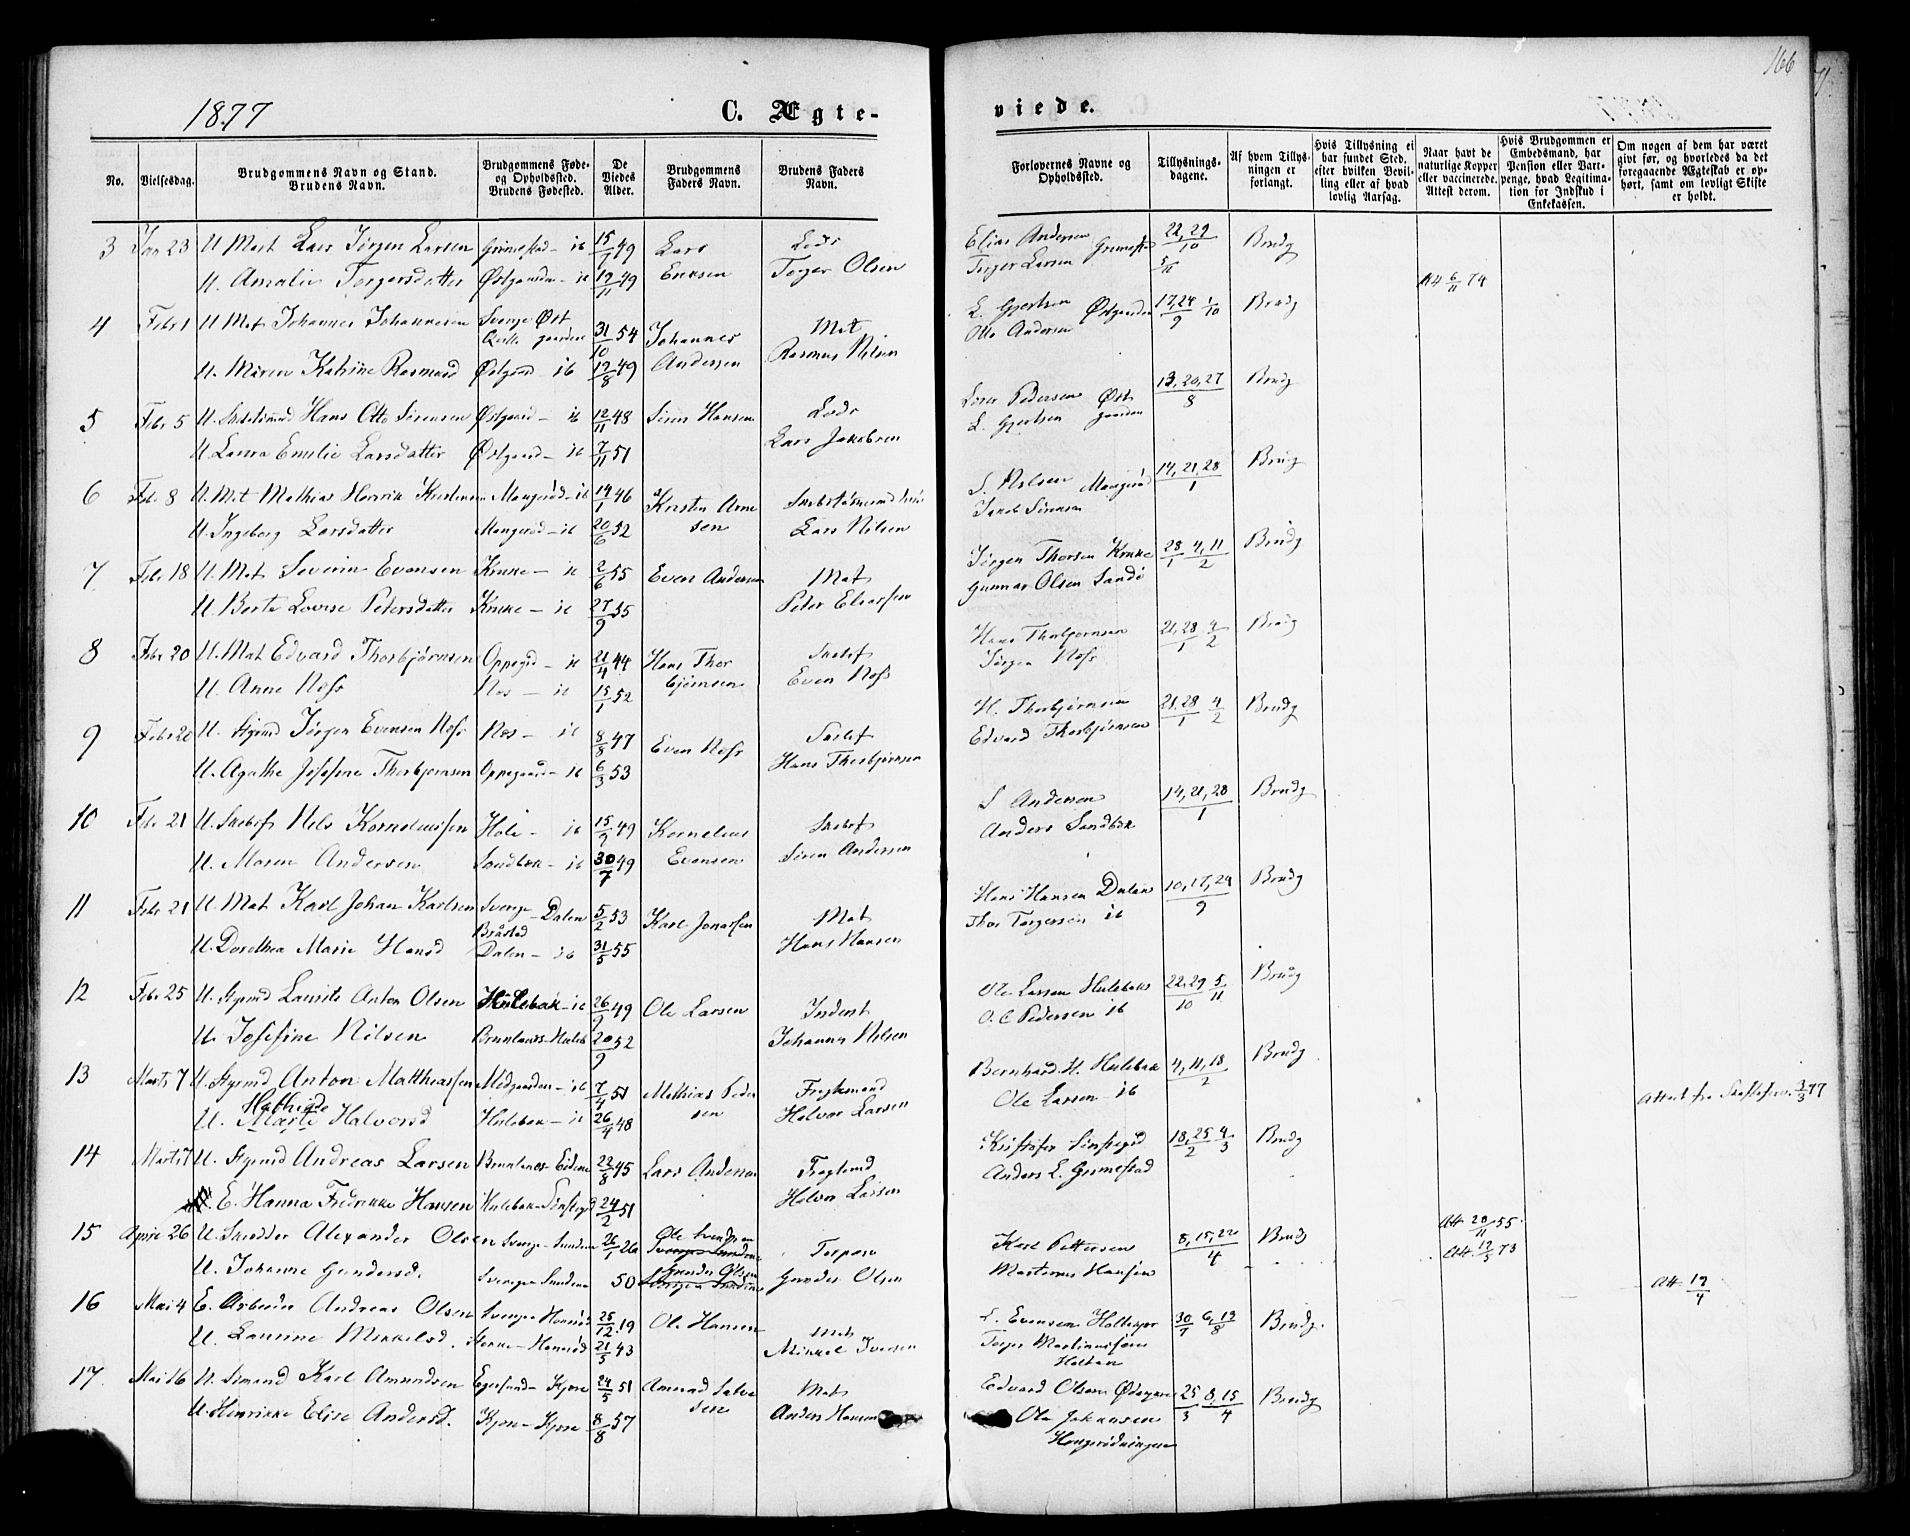 166
1877
C. Ægte-
viede.
No.
Vielsesdag.
Brudgommens Navn og Stand.
Brudens Navn.
Brudgommens Føde-
og Opholdssted.
Brudens Fødested.
De
Viedes
Alder.
Brudgommens
Faders Navn.
Brudens Faders
Navn.
Forlovernes Navne og
Opholdssted.
Tillysnings-
dagene.
Af hvem Tillys-
ningen er
forlangt.
Hvis Tillysning ei
har fundet Sted,
efter hvilken Bevil-
ling eller af hvad
lovlig Aarsag.
Naar havt de
naturlige Kopper
eller vaccinerede.
Attest derom.
Hvis Brudgommen er
Embedsmand, har
Pension eller Vart-
penge, hvad Legitima-
tion for Indskud i
Enkekassen.
Om nogen af dem har været
givt før, og hvorledes da det
foregaaende Ægteskab er op-
hørt, samt om lovligt Skifte
er holdt.
3 Jan 23 U. Mat Lars Jørgen Larsen Grimestad - ib 15/1 49 Lars Lods Elias Andersen 22, 29/10 Brudg
U. Amalie Torgersdatter Østgaarden - ib 19/11 49 Eriksen Torger Olsen Torger Larsen Grimestad 5/11 Att 6/11 74
4 Febr 1 U. Mat Johannes Johannesen Sverige Øst 31/10 54 Johannes Mat L. Gjertsen Østgaarden 17, 24/9 1/10 Brudg
gaarden Otto Andersen
U. Maren Katrine Rasmusd Østgaard - ib 19/8 49 Andersen Rasmus Nilsen
5 Febr 5 U. Hans Otto Sørensen Østgaard - ib 12/11 48 Søren Hansen Lods Pedersen Øst 13, 20, 27/8 Brudg
U. Laura Emilie Larsdatter Østgaard - ib 7/11 51 Lars Jakobsen L. Gjertsen gaarden
6 Febr 8 U. Mat Mathias Henrik Kristensen Mangerød - ib 19/1 46 Kristen Arne S. Nilsen Mangerød 14, 21, 28/1 Brudg
U. Ingeborg Larsdatter Mangerød - ib 20/6 52 sen Lars Nilsen Jakob Sørensen
7 Febr 18 U. Mat Severin Evensen Kruke - ib 2/6 55 Even Andersen Mat Jørgen Thorsen Kruke 28/1 4, 11/2 Brudg
U. Berte Lovise Petersdatter Kruke - ib 27/9 55 Peter Eliassen Gunnar Olsen Sandø
8 Febr 20 U. Mat Edvard Thorbjørnsen Oppegd - ib 21/4 44 Hans Thor Skibsf Hans Thorbjørnsen 21, 28/1 4/2 Brudg
U. Anne Næss Næs - ib 15/1 52 bjørnsen Even Næss Jørgen Næss
9 Febr 20 U. Styrmd Jørgen Evensen Næss Næs - ib 8/8 47 Even Næss Skibsf H. Thorbjørnsen 21, 28/1 4/2 Brudg
U. Agathe Josefine Thorbjørnsen Oppegaard - ib 6/3 53 Hans Thorbjørnsen Edvard Thorbjørnsen
10 Febr 21 U. Skibsf Nils Korneliussen Hole - ib 15/9 49 Kornelius Skibsf S Andersen 14, 21, 28/1 Brudg
U. Maren Andersen Sandbæk - ib 30/7 49 Evensen Søren Andersen Anders Sandbæk
11 Febr 21 U. Mat Karl Johan Karlsen Sverige - Dalen 5/2 53 Karl Jonassen Mat Hans Hansen Dalen 10, 17, 24/9 Brudg
Bråstad
U. Dorethea Marie Hansd Dalen - ib 31/5 55 Hans Hansen Thor Torgersen ib
12 Febr 25 U. Styrmd Laurits Anton Olsen Hulebak - ib 26/9 49 Ole Larsen Indent Ole Larsen Hulebak 22, 29/10 5/11 Brudg
U. Josefine Nilsen Brunlanes - Huleb 20/9 52 Johannes Nilsen O. C Pedersen ib
13 Marts 7 U. Styrmd Anton Matthiassen Midgaarden - ib 7/4 51 Mathias Peder Fragtemand Bernhard H. Hulebak 4, 11, 18/2 Brudg
Hathigde
U. Marte Halvorsd Hulebak - ib 26/4 48 sen Halvor Larsen Ole Larsen ib Attest fra Skifteforv. 3/3 77
14 Marts 7 U. Styrmd Andreas Larsen Brunlanes - Eidene 22/8 45 Lars Andersen Fragtmd Kristofer Sønstegd 18, 25/2 4/3 Brudg
E. Hanna Fredrikke Hansen Hulebak - Sønstegd 24/2 51 Halvor Larsen Anders L. Grimestad
15 April 26 U. Skrædder Alexander Olsen Sverige - Sundene 26/1 26 Ole Svendsen Torpare Karl Pettersen 8, 15, 22/4 Brud Att. 20/11 55
U. Johanne Gundersd. Sverige - Sundene 50 Gunder Olsen Gunder Olsen Martinus Hansen Att. 12/5 73 Att 19/4
16 Mai 4 E. Arbeider Andreas Olsen Sverige Hannød 25/12 19 Ole Hansen L. Evensen Holtegar 30/7 6, 13/8 Brudg.
U. Laurine Mikkelsd. - Hannød 21/5 43 Mat Mikkel Iversen Torger Martinussen
Holtan
17. Mai 16 U. Sømand Karl Amundsen Egersund - Kjøpe 24/5 51 Amund Salve Mat Edvard Olsen Ødegaard 25/3 8, 15/4 Brudg
U. Henrikke Elise Andersd. Kjøpe - Kjøpe 8/8 57 sen Anders Hansen Ole Johansen